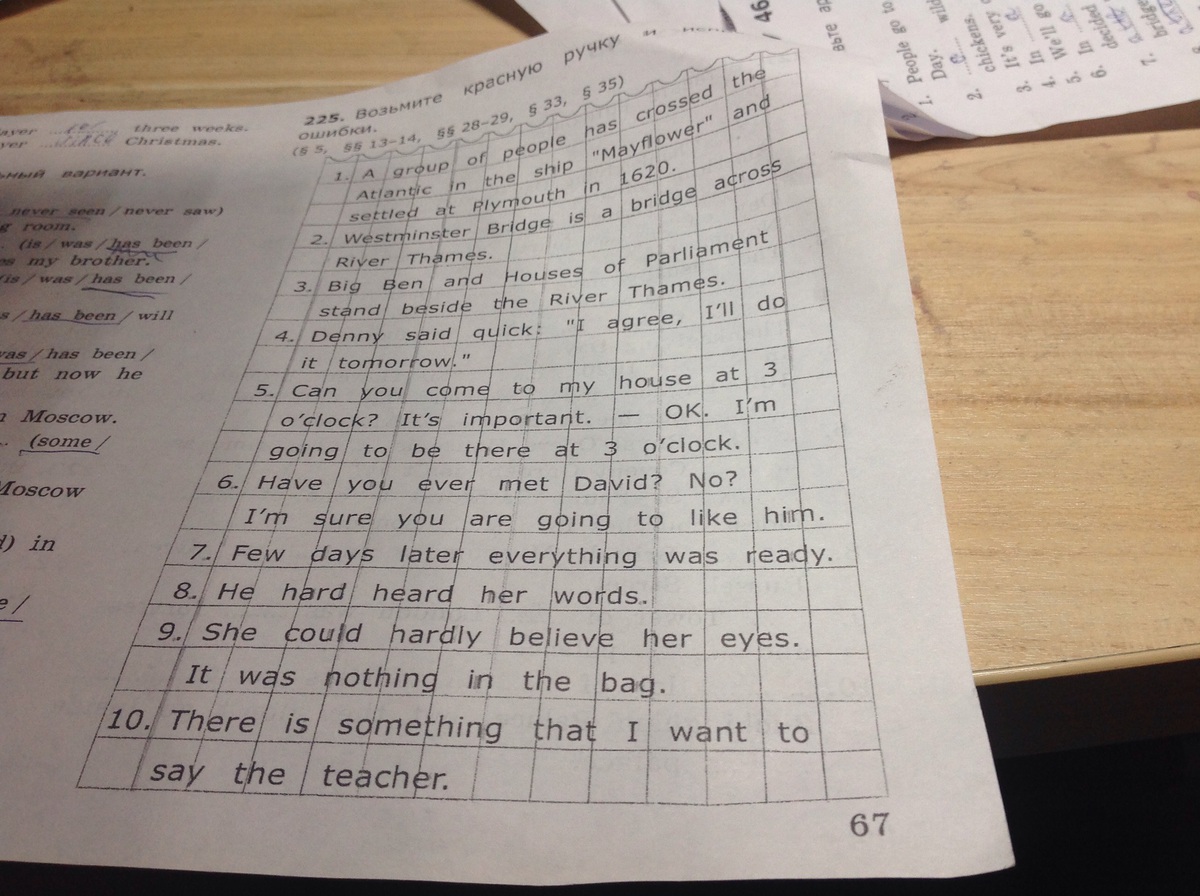 ayer three weeks.
yer Christmas.
ьмый вариант.
never seen / never saw)
g room.
. (is / was / has been /
es my brother.
is / was / has been /
s / has been / will
vas / has been /
but now he
n Moscow.
(some /
Moscow
d) in
e /
225. Возьмите красную ручку и
ошибки.
(§ 5, §§ 13–14, §§ 28–29, § 33, § 35)
1. A group of people has crossed the
Atlantic in the ship "Mayflower" and
settled at Plymouth in 1620.
2. Westminster Bridge is a bridge across
River Thames.
3. Big Ben and Houses of Parliament
stand beside the River Thames.
4. Denny said quick: "I agree, I'll do
it tomorrow."
5. Can you come to my house at 3
o'clock? It's important. — OK. I'm
going to be there at 3 o'clock.
6. Have you ever met David? No?
I'm sure you are going to like him.
7. Few days later everything was ready.
8. He hard heard her words.
9. She could hardly believe her eyes.
It was nothing in the bag.
10. There is something that I want to
say the teacher.
67
46
вьте ар
1. People go to
Day.
wild
2.
chickens.
3. It's very
4. In
5. We'll go
6. In
decided
7.
bridge